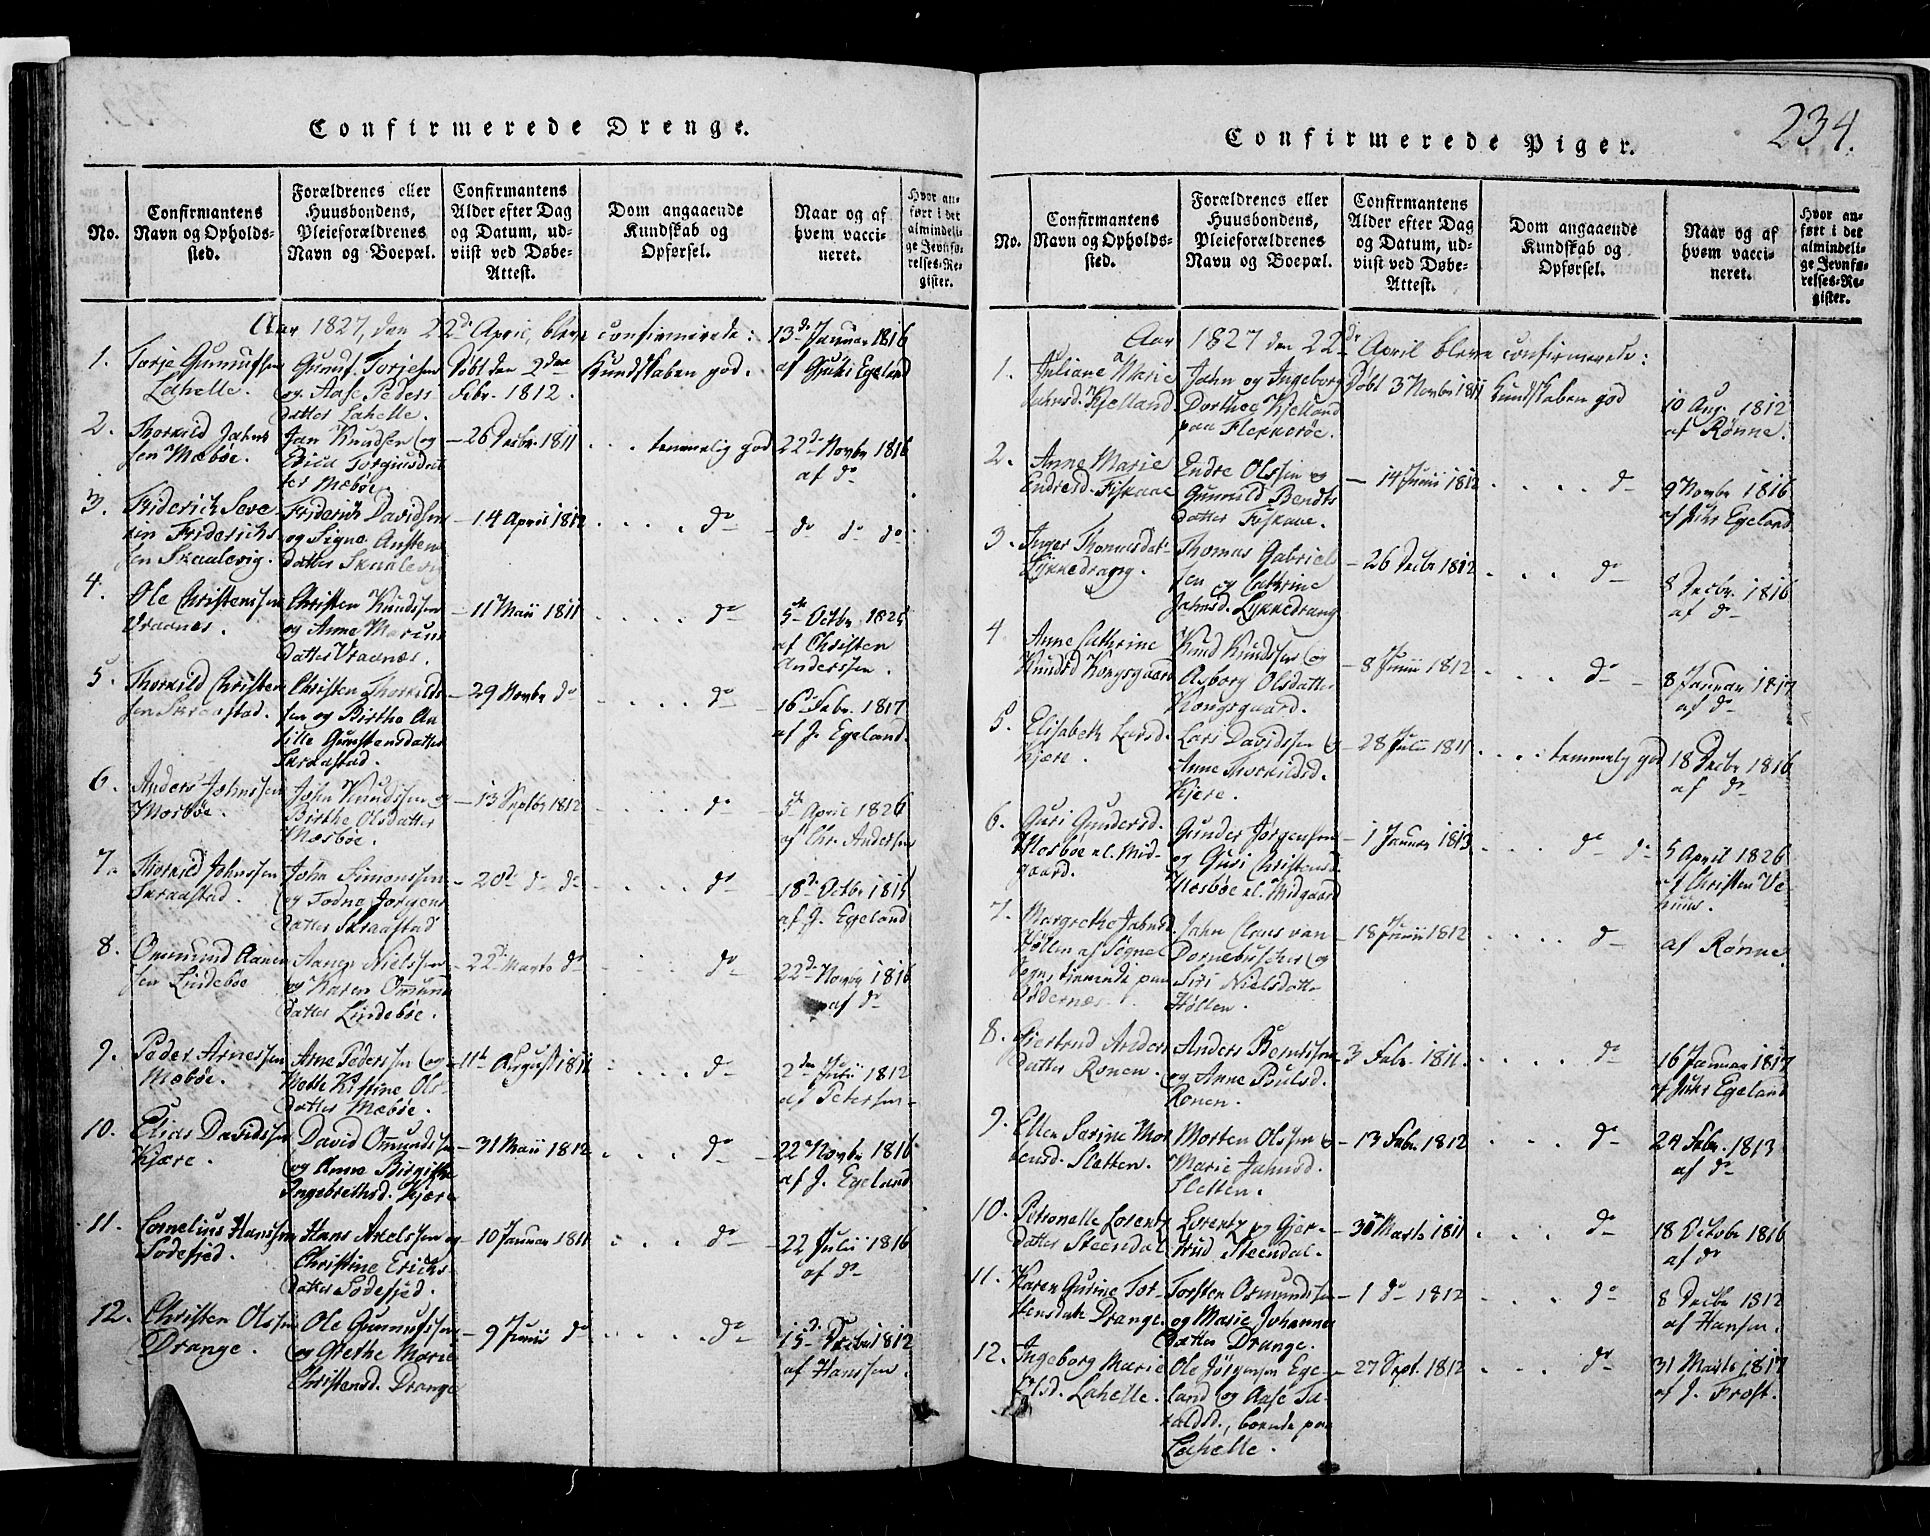 Confirmerede Drenge.
No.
Confirmantens
Navn og Opholds-
sted.
Forældrenes eller
Huusbondens,
Pleieforældrenes
Navn og Boepæl.
Confirmantens
Alder efter Dag
og Datum, ud-
viist ved Døbe-
Attest.
Dom angaaende
Kundskab og
Opførsel.
Naar og af
hvem vacci-
neret.
Hvor an-
ført i det
almindeli-
ge Jevnfø-
relses-Re-
gister.
Aar 1827, den 22de April, bleve confirmerede:
1.
Torje Gunnufsen
Lahelle.
Gunuf Torjesen
og Aase Peders
datter Lahelle.
Døbt den 2den
Febr. 1812.
Kundskaben god.
13de Januar 1816
af Egeland
2.
Thorkild Jahns
sen Mæbøe.
Jan Knudsen og
Torgiusdat
ter Mæbøe.
- 26 Decbr. 1811
. . temmelig god
22de Novbr 1816
af do
3.
Friderich Seve-
rin Friderichs
sen Skaalevig.
Friderich Davidsen
og Signe Austens
datter Skaalevig
- 14 April 1812
. . . . do
do do do
4.
Ole Christenssen
Vraanes.
Christen Knudssen
og Anne
datter Vraanes.
- 11 Maii 1811
. . . . do
5te Octbr 1825
af Christen
Anderssen.
5.
Thorkild Christen
sen Skraastad.
Christen Thorkilds
sen og Birthe An
Gunstensdatter
Skraastad.
- 29 Novbr do
. . . . do
16 Febr. 1817
af J. Egeland.
6.
Anders Johnssen
Mosbøe.
John Knudssen og
Birthe Olsdatter
Mæsbøe.
- 13 Septbr 1812
. . . . do
5te April 1826
af Chr. Andersen
7.
Thorkild Johnssen
Skraastad.
John Simonssen
og Todne Jørgens
datter Skraastad
- 20de do do
. . . . do
18de Octbr 1815
af J. Egeland
8.
Ommund Aanen
sen Lindebøe
Aanen Nielssen
og Karen Ommunds
datter Lindebøe.
- 22de Marts do
. . . do
22de Novbr 1816
af do
9.
Peder Arnessen
Mæbøe.
Arne Pederssen og
Mette Kistine Ols-
datter Mæbøe.
- 11te August 1811
. . . do
2den Juli 1812
af Petersen
10.
Elias Davidssen
Kjære.
David Omundssen
og Anne Birgitte
Ingebrethsd. Kjære
- 31 Maii 1812
. . . do
22 Novbr 1816
af J. Egeland
11.
Cornelius Hanssen
Sodefjed.
Hans Axelssen og
Christine Erichs
datter Sodefjed.
- 10 Januar 1811
. . . do
22 Julii 1816
af do
12.
Christen Olssen
Drange.
Ole Gunnufssen
og Grethe Marie
Christensd. Drange
- 9 Junii do
. . . . do
15de Decbr 1812
af Hanssen.
234.
Confirmerede Piger.
No.
Confirmantens
Navn og Opholds-
sted.
Forældrenes eller
Huusbondens,
Pleieforældrenes
Navn og Boepæl.
Confirmantens
Alder efter Dag
og Datum, ud-
viist ved Døbe-
Attest.
Dom angaaende
Kundskab og
Opførsel.
Naar og af
hvem vacci-
neret.
Hvor an-
ført i det
almindeli-
ge Jevnfø-
relses-Re-
gister.
Aar 1827 den 22de April bleve confirmerede:
1.
Juliane Marie
Jahnsd. Kjelland
Jahn og Ingeborg
Dorthea Kjelland
paa Flekkerøe.
Døbt 3 Novbr 1811
Kundskaben god
10 Aug. 1812
af Rønne.
2.
Anne Marie
Endresd. Fiskaae
Endre Olssen og
Gunnild Bendts
datter Fiskaae.
- 14 Junii 1812
. . . . do
9 Novbr 1816
af Egeland
3.
Inger Thomesdat-
Lykkedrang.
Thomas Gabriels
sen og Cathrine
Jahnsd. Lykkedrang
- 26 Decbr 1812
. . . do
8 Decbr. 1816
af do
4
Anne Cathrine
Knudsd Kongsgaard
Knud Knudssen og
Asborg Olsdatter
Kongsgaard.
- 8 Junii 1812
. . . do
8 Januar 1817
af do
5.
Elisabeth Larsd.
Kjære.
Lars Davidssen og
Anne Thorkildsd.
Kjere.
- 28 Julii 1811
. . . temmelig god
18 Decbr 1816
af do
6.
Guri Gundersd.
Mosbøe el. Mid-
gaard.
Gunder Jørgensen
og Guri Christensd
Mæsbøe el. Midgaard
- 1 Januar 1813
. . . do do
5 April 1826
af Christen Ve-
7.
Margrethe Jahnsd.
Høllen af Søgne
Sogn, tienende paa
Oddernæs.
Jahn Claus van
Dornebuscher og
Siri Nielsdatt-
Høllen.
- 18 Junii 1812
. . . . do
af Rønne.
8.
Giertrud Anders
datter Ronen.
Anders Berntssen
og Anne Poulsd.
Ronen.
- 3 Febr. 1811.
. . . . do
16 Januar 1817
af Egeland
9.
Ellen Serine Mor
tensd. Sletten.
Morten Olssen og
Marie Jahnsd.
Sletten.
- 13 Febr 1812
. . . do
24 Febr. 1813
af do
10.
Petronelle Lorentz
datter Steensdal.
Lorentz og Gjer-
trud Steendal.
- 30 Marts 1811
. . . do
18 Octobr 1816
af do
11.
Karen Gurine Tor-
stensdatt Drange.
Torsten Osmundssen
og Marie Johanne
datter Drange.
- 1 do 1812
. . . do
8 Decbr 1812
af Hansen.
12.
Ingeborg Marie
Olsd. Lahelle.
Ole Jørgensen Ege-
land og Aase Ta-
raldsd., boende paa
Lahelle.
- 27 Sept. 1812
. . . do
31 Marts 1817
af J. Frost.